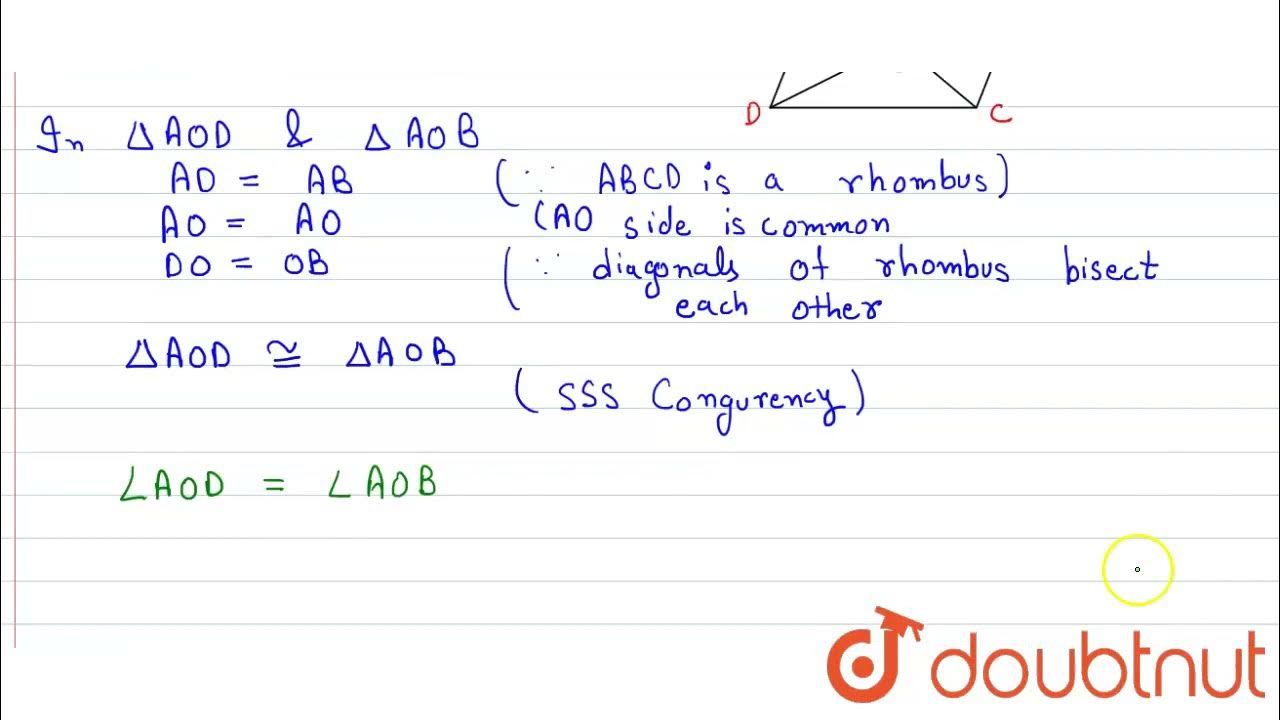 D C
In △AOD & △AOB
AD = AB (∵ ABCD is a rhombus)
AO = AO (AO side is common
DO = OB (∵ diagonals of rhombus bisect
each other
△AOD ≅ △AOB
(SSS Congurency)
∠AOD = ∠AOB
doubtnut